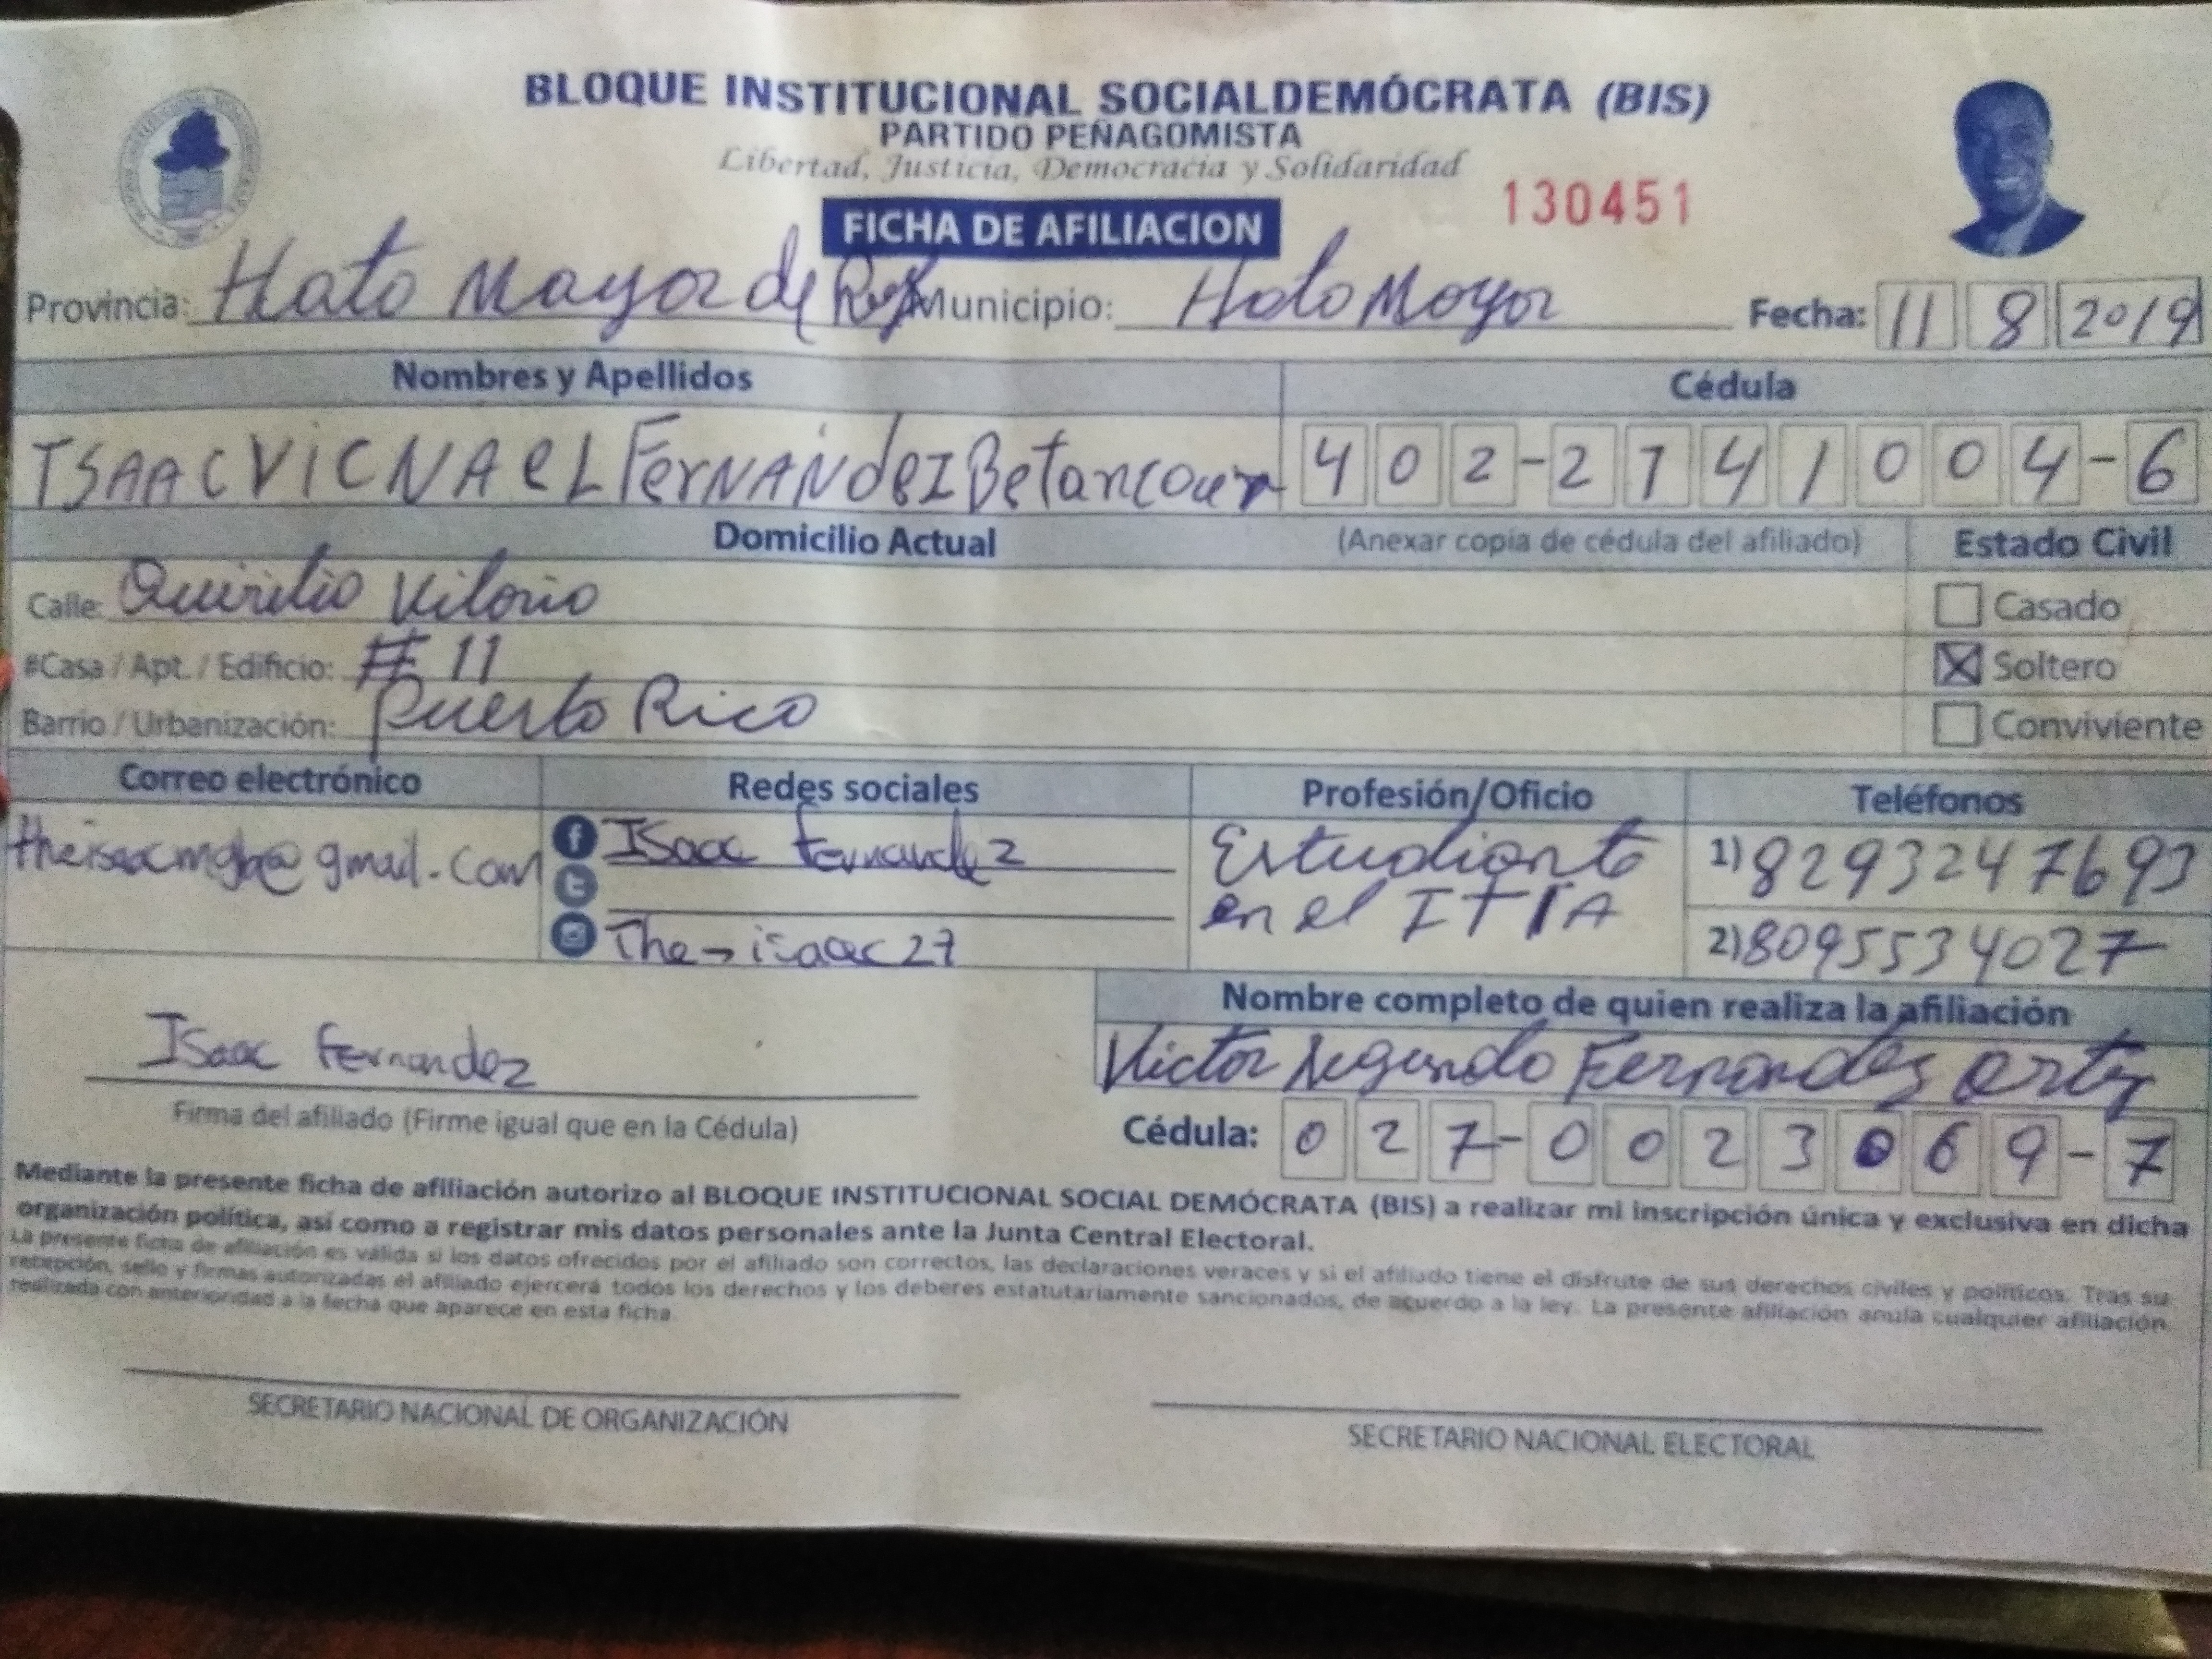 BLOQUE INSTITUCIONAL SOCIALDEMÓCRATA (BIS)
PARTIDO PEÑAGOMISTA
Libertad, Justicia, Democracia y Solidaridad
130451
FICHA DE AFILIACION
Provincia: Hato Mayor del Rey Municipio: Hato Mayor Fecha: 11 8 2019
Nombres y Apellidos Cédula
ISAAC VICNAEL FERNANdEZ Betancourt 402-2141004-6
Domicilio Actual (Anexar copia de cédula del afiliado) Estado Civil
Calle: Quirilio Vilorio Casado
#Casa / Apt. / Edificio: # 11 Soltero
Barrio / Urbanización: Puerto Rico Conviviente
Correo electrónico Redes sociales Profesión/Oficio Teléfonos
@gmail.com Isaac fernandez Estudiante 1) 8293247693
en el ITIA
The isaac27 2) 8095534027
Nombre completo de quien realiza la afiliación
Isaac fernandez Victor Segundo Fernandez
Firma del afiliado (Firme igual que en la Cédula) Cédula: 027-0023069-7
Mediante la presente ficha de afiliación autorizo al BLOQUE INSTITUCIONAL SOCIAL DEMÓCRATA (BIS) a realizar mi inscripción única y exclusiva en dicha
organización política, así como a registrar mis datos personales ante la Junta Central Electoral.
La presente ficha de afiliación es válida si los datos ofrecidos por el afiliado son correctos, las declaraciones veraces y si el afiliado tiene el disfrute de sus derechos civiles y políticos. Tras su
recepción, sello y firmas autorizadas el afiliado ejercerá todos los derechos y los deberes estatutariamente sancionados, de acuerdo a la ley. La presente afiliación anula cualquier afiliación
realizada con anterioridad a la fecha que aparece en esta ficha.
SECRETARIO NACIONAL DE ORGANIZACIÓN SECRETARIO NACIONAL ELECTORAL